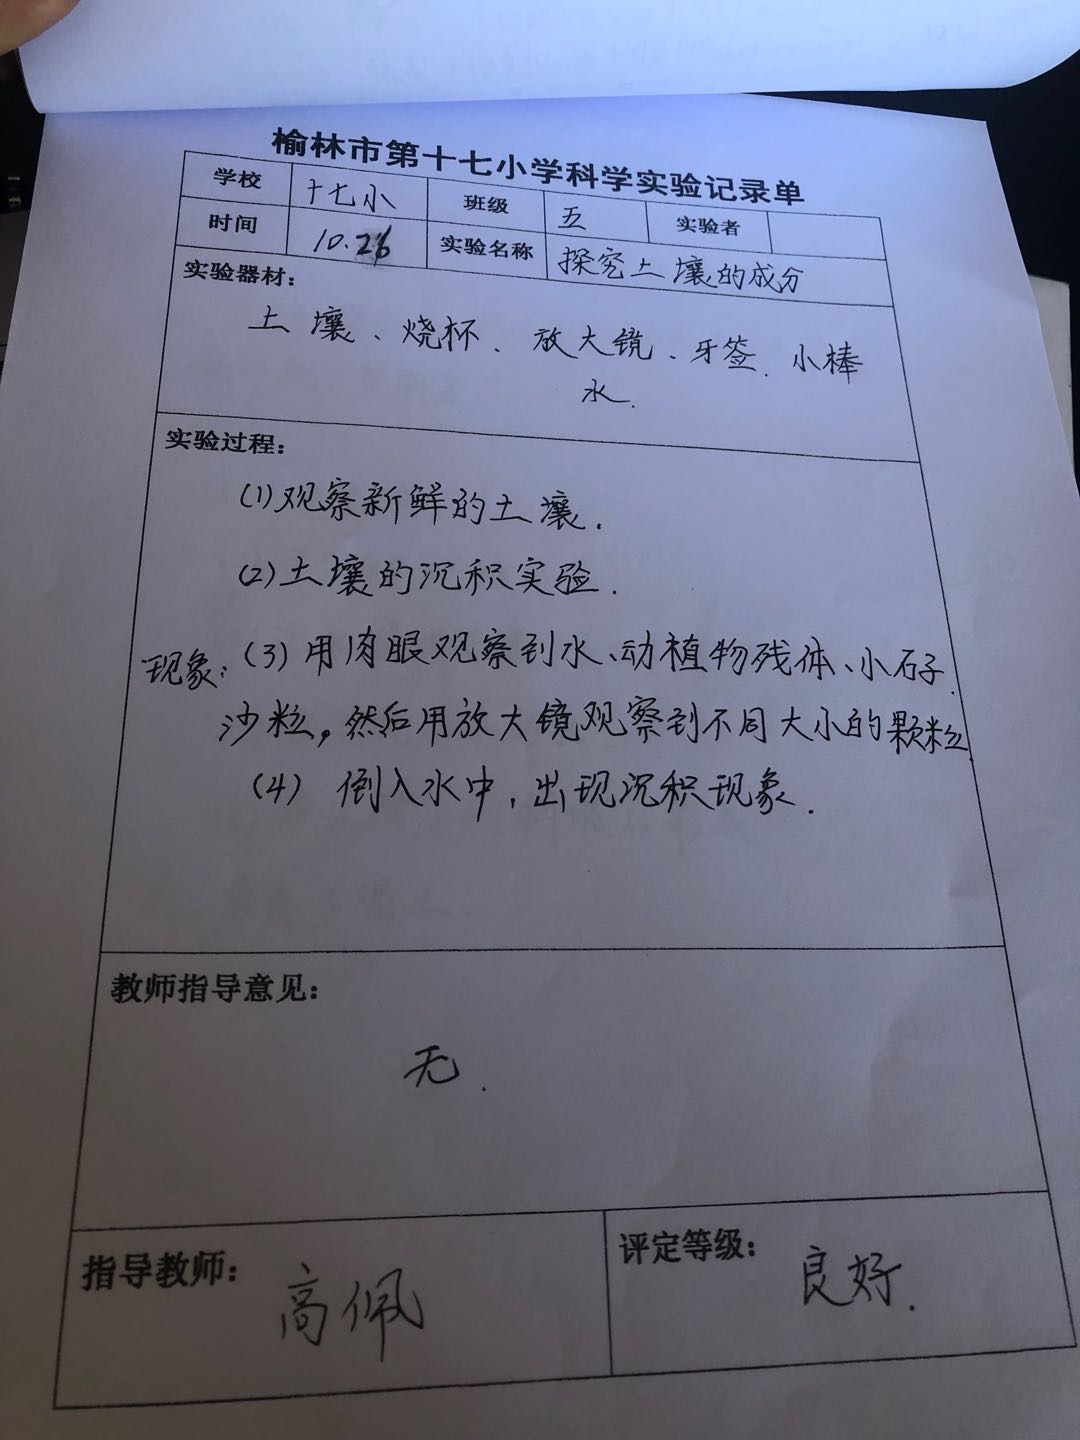 榆林市第十七小学科学实验记录单
学校 十七小 班级 五 实验者
时间 10.26 实验名称 探究土壤的成分
实验器材：
土壤、烧杯、放大镜、牙签、小棒
水.
实验过程：
(1)观察新鲜的土壤.
(2)土壤的沉积实验.
现象：(3)用肉眼观察到水、动植物残体、小石子、
沙粒，然后用放大镜观察到不同大小的颗粒
(4) 倒入水中，出现沉积现象.
教师指导意见：
无.
指导教师： 高佩 评定等级： 良好.